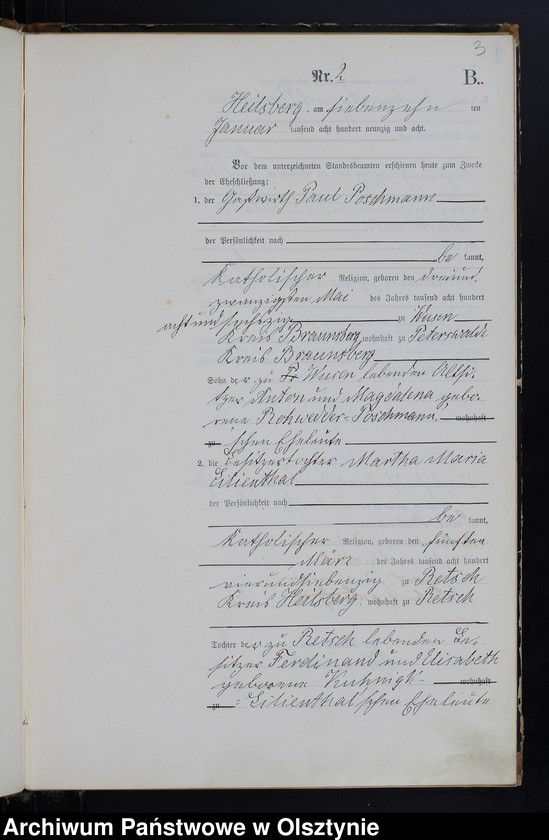 3
Nr. 2
B..
Heilsberg am siebenzehn ten
Januar tausend acht hundert neunzig und acht.
Vor dem unterzeichneten Standesbeamten erschienen heute zum Zwecke
der Eheschließung:
1. der Gastwirth Paul Poschmann
der Persönlichkeit nach
be kannt,
katholischer Religion, geboren den dreiund
zwanzigsten Mai des Jahres tausend acht hundert
acht und sechszig zu Wusen
Kreis Braunsberg, wohnhaft zu Peterswalde
Kreis Braunsberg
Sohn der zu Wusen lebenden Altsi-
tzer Anton und Magdalena gebo-
rene Rohwedder-Poschmann wohnhaft
zu 'schen Eheleute
2. die Besitzertochter Martha Maria
Lilienthal
der Persönlichkeit nach
be kannt,
katholischer Religion, geboren den fünften
März des Jahres tausend acht hundert
vierundsiebenzig zu Retsch
Kreis Heilsberg, wohnhaft zu Retsch
Tochter der zu Retsch lebenden Be-
sitzer Ferdinand und Elisabeth
geborene Kuhnigk- wohnhaft
zu =Lilienthal'schen Eheleute
Archiwum Państwowe w Olsztynie